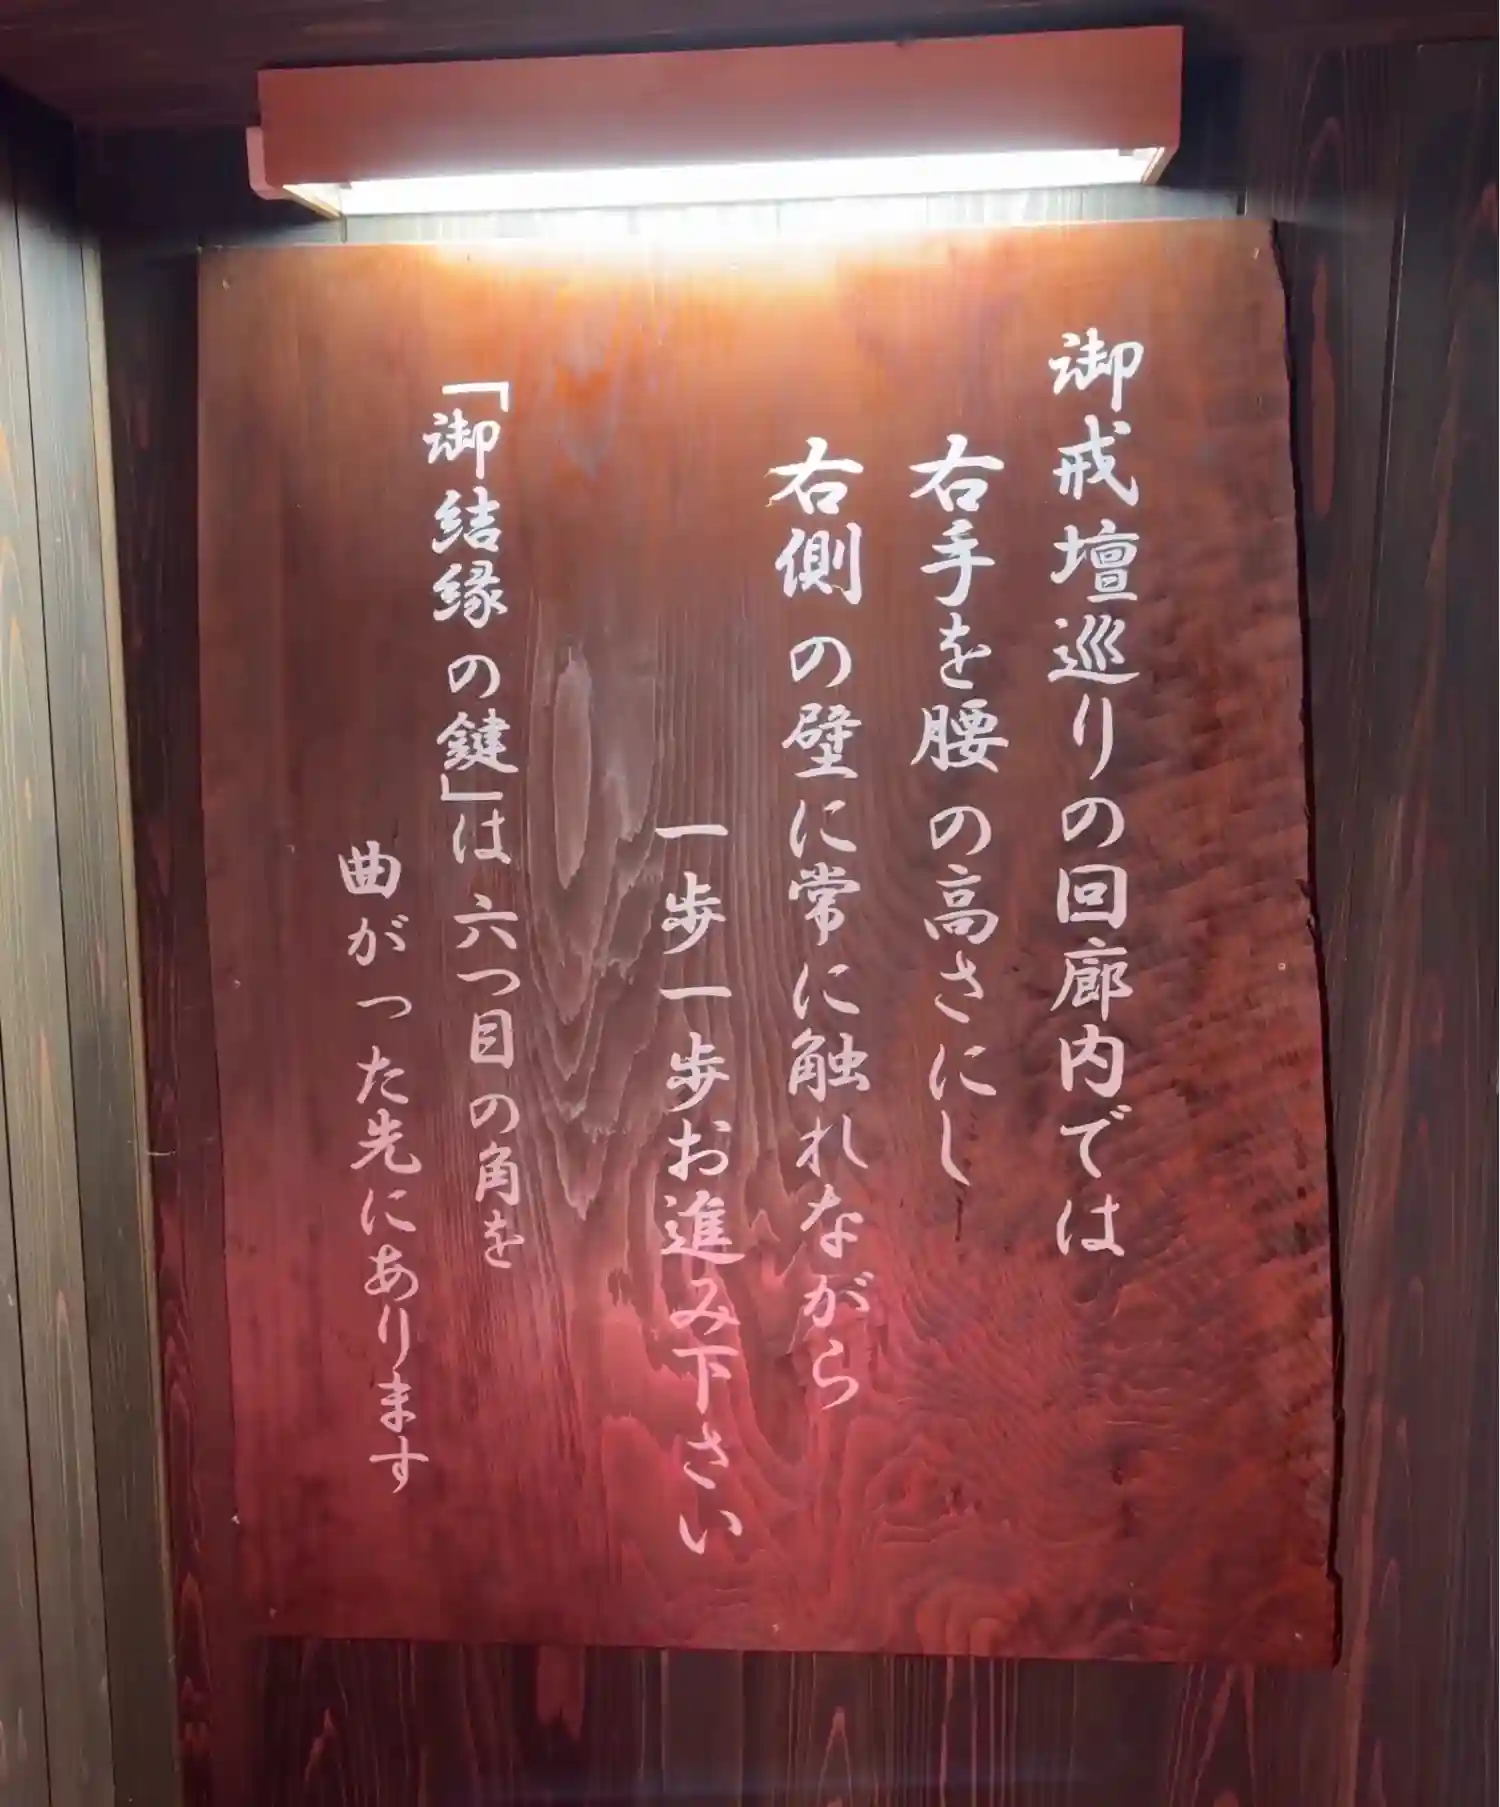 御戒壇巡りの回廊内では
右手を腰の高さにし
右側の壁に常に触れながら
一歩一歩お進み下さい
「御結縁の鍵」は六つ目の角を
曲がった先にあります